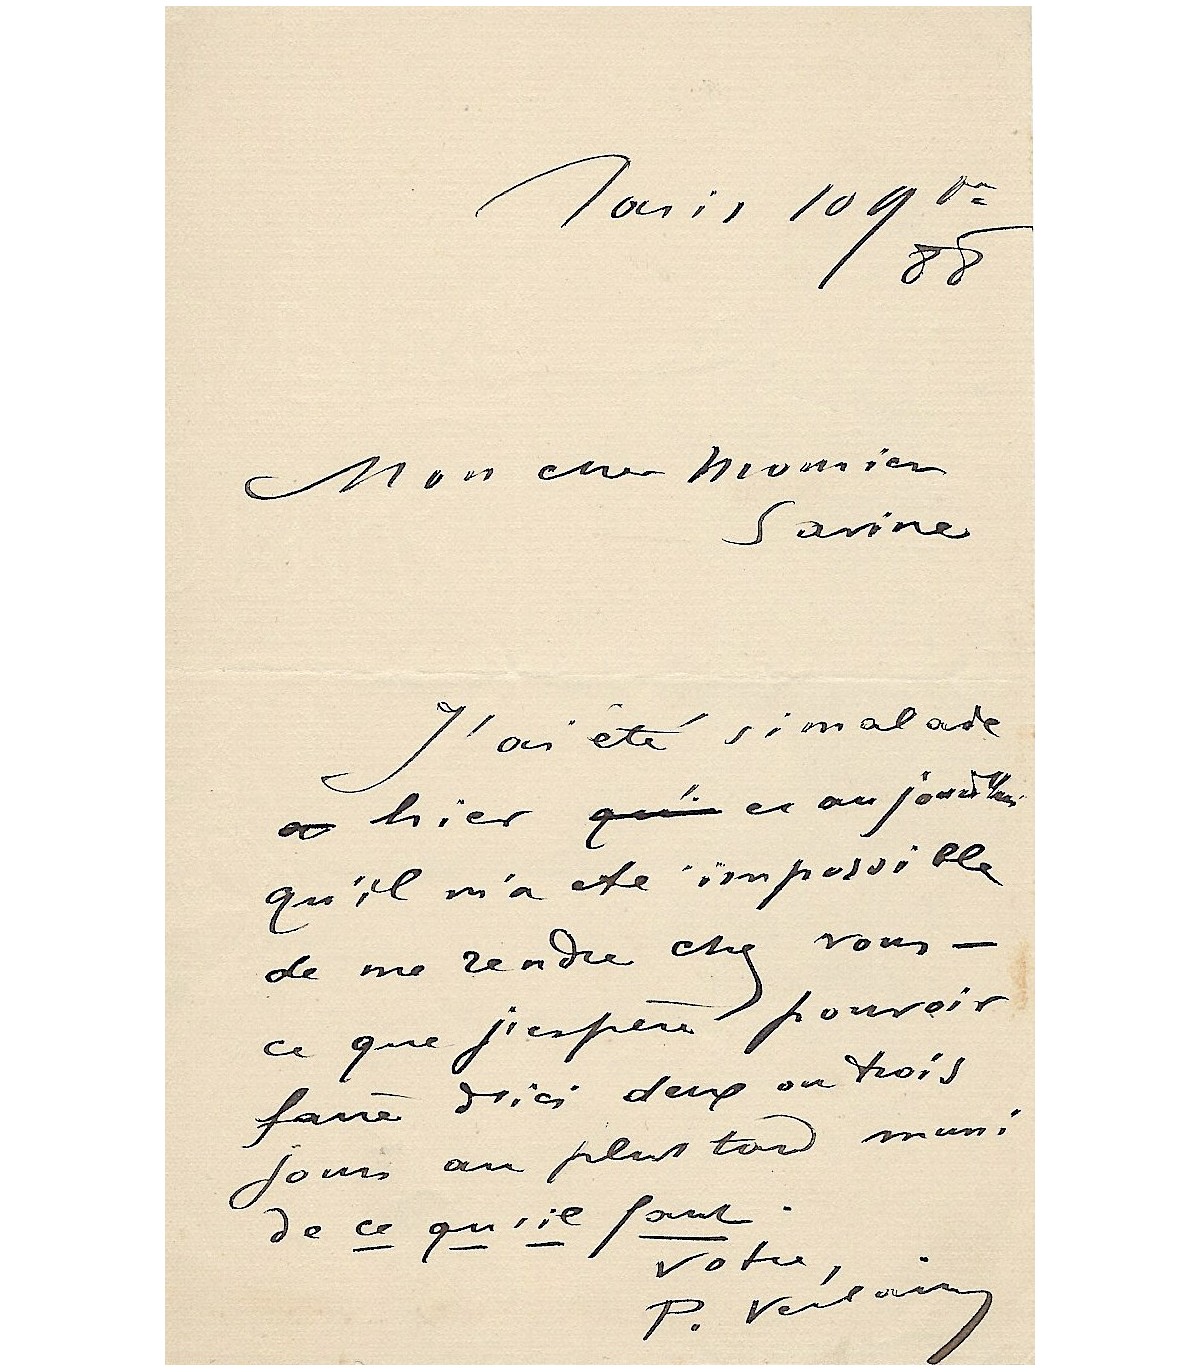 Paris 10 9bre
88
Mon cher Monsieur
Savine
J'ai été si malade
hier qu'i et aujourd'hui
qu'il m'a été impossible
de me rendre chez vous —
ce que j'espère pouvoir
faire d'ici deux ou trois
jours au plus tard muni
de ce qu'il faut.
Votre,
P. Verlaine